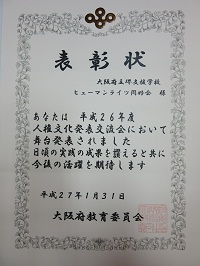 表彰状
大阪府立堺支援学校
ヒューマンライツ同好会 様
あなたは 平成26年度
人権文化発表交流会において
舞台発表されました
日頃の実践の成果を讃えると共に
今後の活躍を期待します
平成27年1月31日
大阪府教育委員会